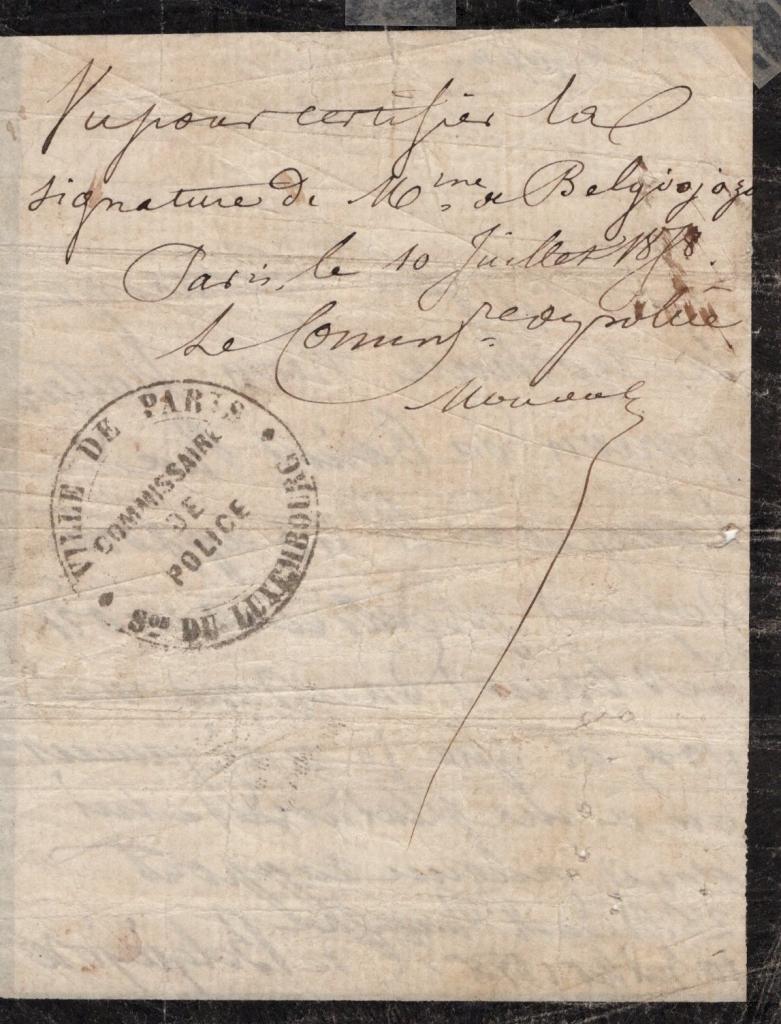 Vu pour certifier la
signature de Mme de Belgiojozo
Paris, le 10 Juillet 1878.
Le Commre de police
VILLE DE PARIS
COMMISSAIRE
DE
POLICE
Son DU LUXEMBOURG